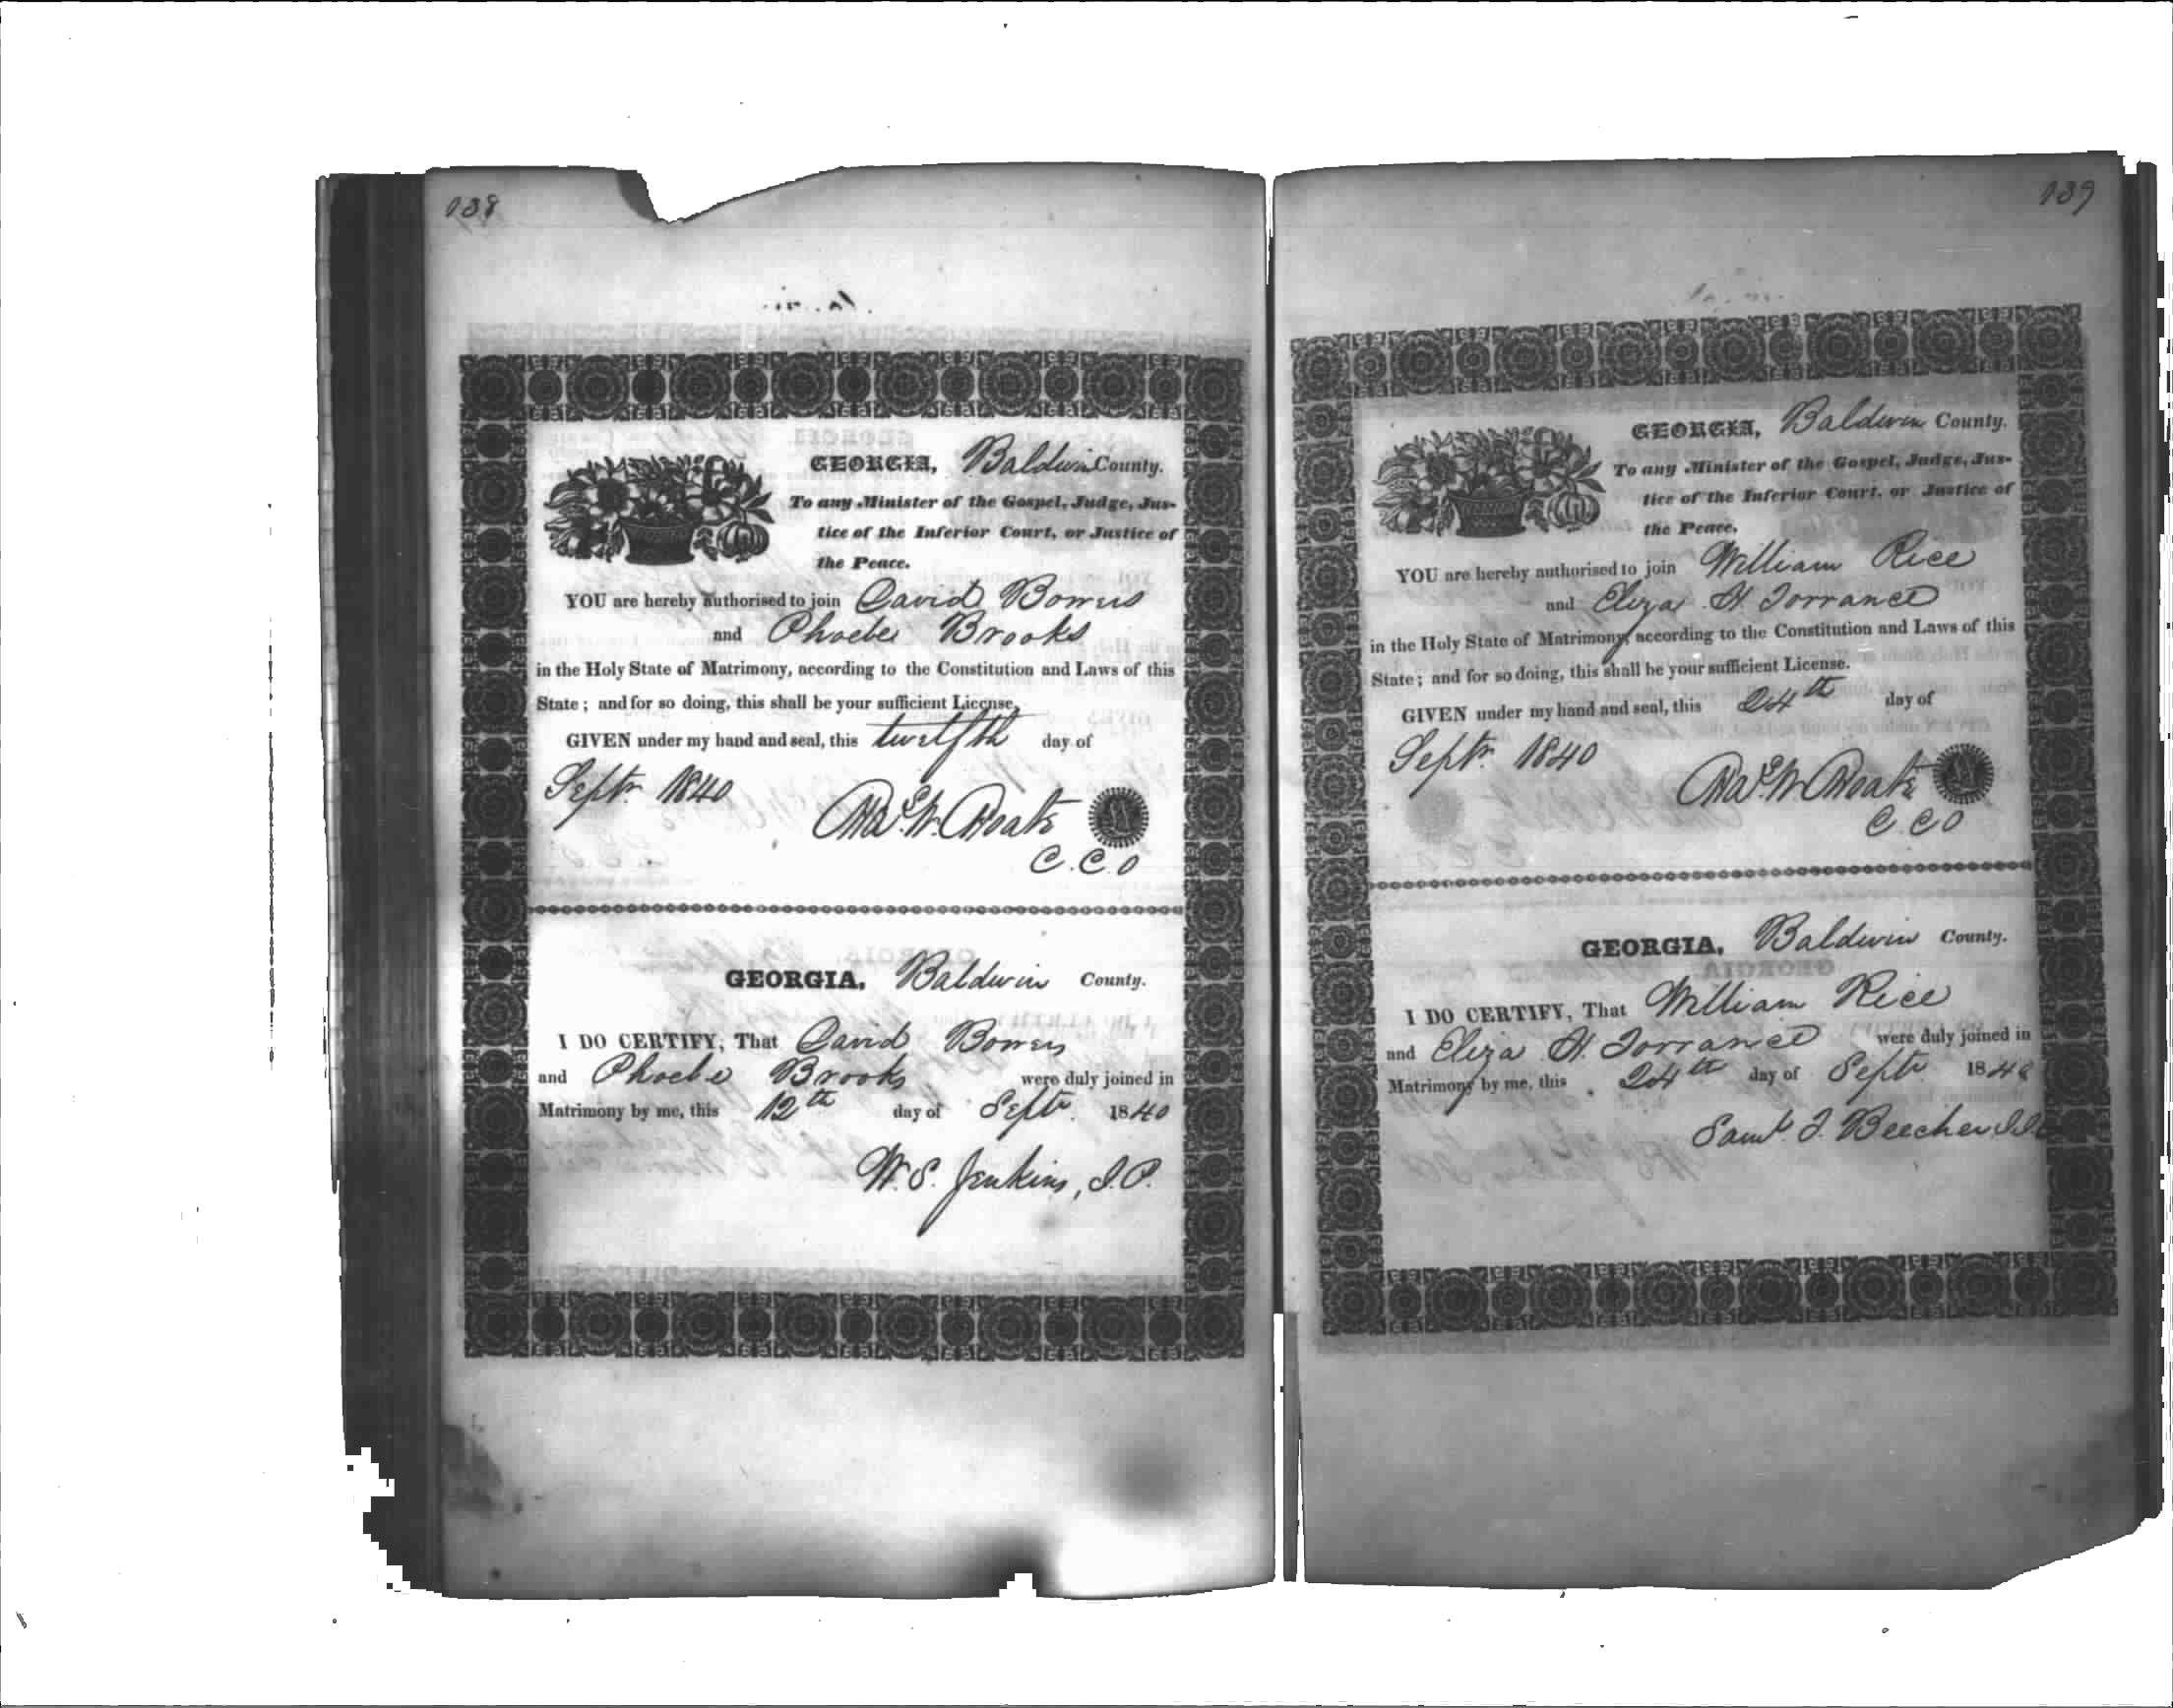 138
GEORGIA, Baldwin County.
To any Minister of the Gospel, Judge, Jus-
tice of the Inferior Court, or Justice of
the Peace.
YOU are hereby authorised to join David Bowers
and Phoebe Brooks
in the Holy State of Matrimony, according to the Constitution and Laws of this
State; and for so doing, this shall be your sufficient License.
GIVEN under my hand and seal, this twelfth day of
Septr. 1840
Chas. W. Choate
C.C.O
GEORGIA, Baldwin County.
I DO CERTIFY, That David Bowers
and Phoebe Brooks were duly joined in
Matrimony by me, this 12th day of Septr. 1840
W. S. Jenkins, J.P.
139
GEORGIA, Baldwin County.
To any Minister of the Gospel, Judge, Jus-
tice of the Inferior Court, or Justice of
the Peace.
YOU are hereby authorised to join William Rice
and Eliza H. Torrance
in the Holy State of Matrimony, according to the Constitution and Laws of this
State; and for so doing, this shall be your sufficient License.
GIVEN under my hand and seal, this 24th day of
Septr. 1840
Chas. W. Choate
C.C.O
GEORGIA, Baldwin County.
I DO CERTIFY, That William Rice
and Eliza H. Torrance were duly joined in
Matrimony by me, this 24th day of Septr 1840
Saml. J. Beecher